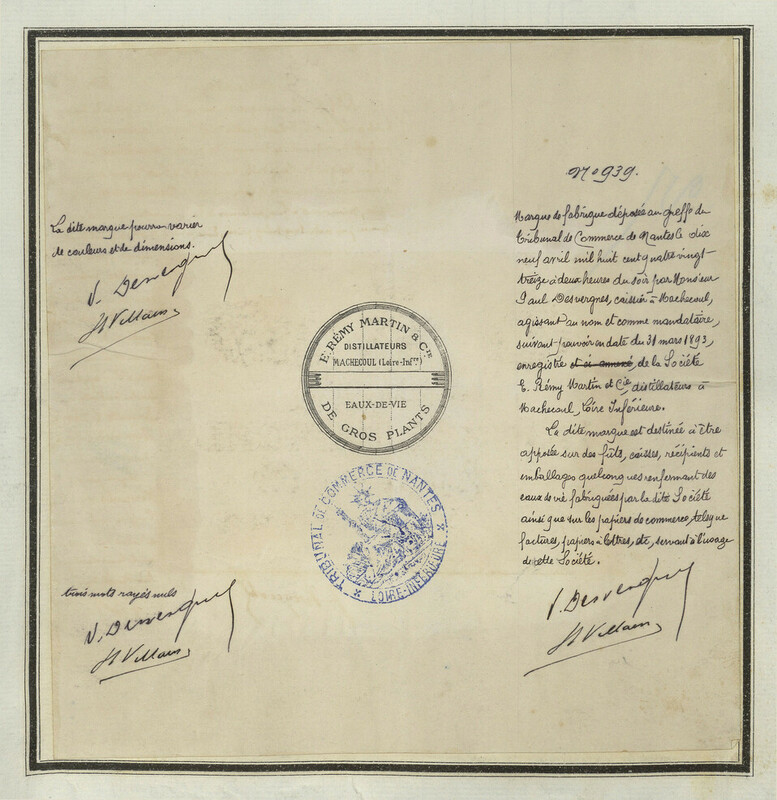 La dite marque pourra varier
de couleurs et de dimensions.
P. Desvergnes
H Villain
E. RÉMY MARTIN & Cie
DISTILLATEURS
MACHECOUL (Loire-Infre)
EAUX-DE-VIE
DE GROS PLANTS
TRIBUNAL DE COMMERCE DE NANTES
LOIRE-INFÉRIEURE
trois mots rayés nuls
P. Desvergnes
H Villain
No 939.
Marque de fabrique déposée au greffe du
Tribunal de Commerce de Nantes le dix
neuf avril mil huit cent quatre vingt-
treize à deux heures du soir par Monsieur
Paul Desvergnes, caissier à Machecoul,
agissant au nom et comme mandataire,
suivant pouvoir en date du 31 mars 1893,
enregistré et ci annexé, de la Société
E. Rémy Martin et Cie, distillateurs à
Machecoul, Loire Inférieure.
La dite marque est destinée à être
apposée sur des fûts, caisses, récipients et
emballages quelconques renfermant des
eaux de vie fabriquées par la dite Société
ainsi que sur les papiers de commerce, tels que
factures, papiers à lettres, etc, servant à l'usage
de cette Société.
P. Desvergnes
H Villain